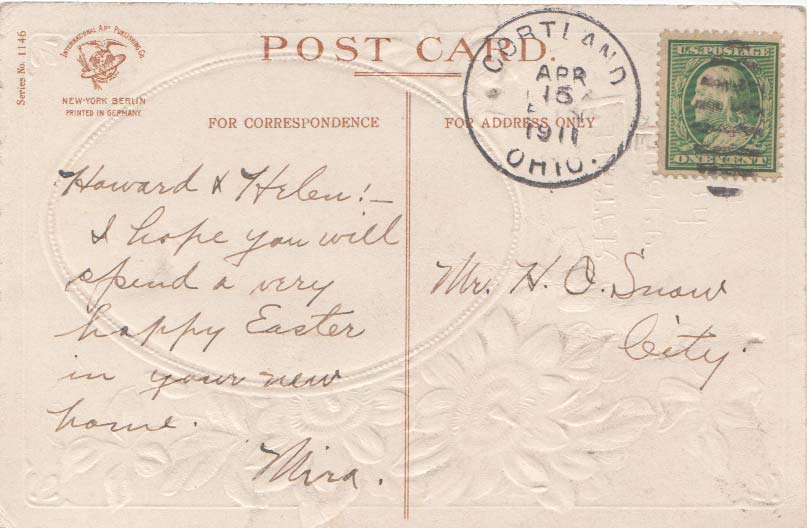 Series No. 1146
INTERNATIONAL ART PUBLISHING CO.
NEW-YORK BERLIN
PRINTED IN GERMANY
POST CARD.
CORTLAND
APR
15
1911
OHIO.
U.S. POSTAGE
ONE CENT
FOR CORRESPONDENCE
FOR ADDRESS ONLY
Howard & Helen! –
I hope you will
spend a very
happy Easter
in your new
home.
Mira.
Mr. H. O. Snow
City.